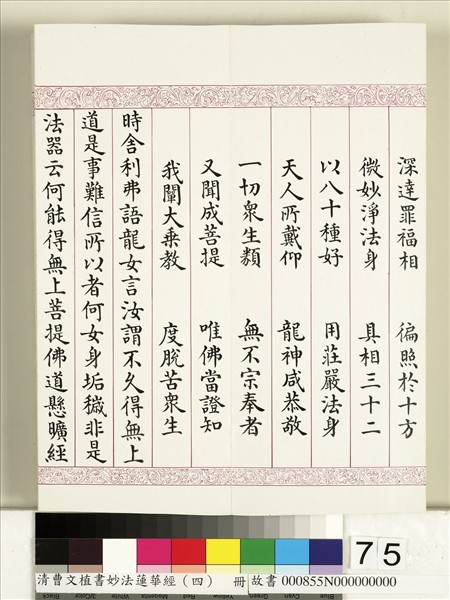 深達罪福相　徧照於十方
微妙淨法身　具相三十二
以八十種好　用莊嚴法身
天人所戴仰　龍神咸恭敬
一切衆生類　無不宗奉者
又聞成菩提　唯佛當證知
我闡大乘教　度脫苦衆生
時舍利弗語龍女言汝謂不久得無上
道是事難信所以者何女身垢穢非是
法器云何能得無上菩提佛道懸曠經
75
清曹文植書妙法蓮華經（四）　冊 故書 000855N000000000